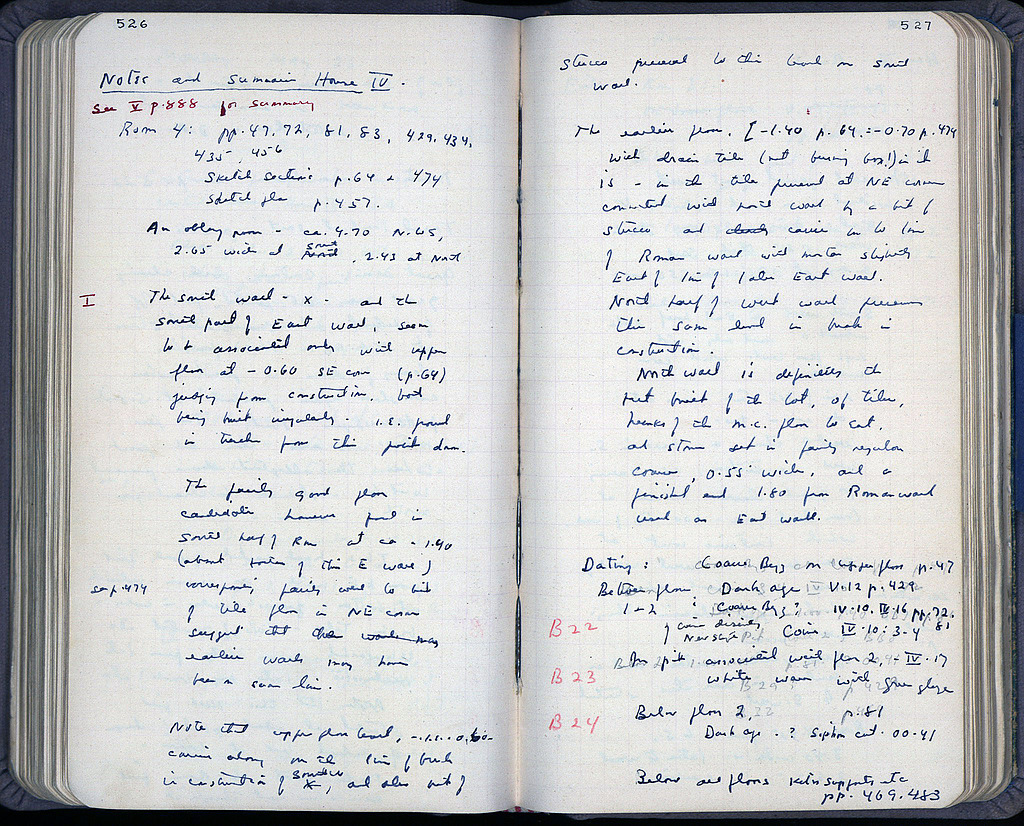 526
Notes and Summaries House IV.
See V p. 888 for Summary
Room 4: pp. 47, 72, 81, 83, 429, 434,
435, 456
Sketch sections p. 64 & 474
Sketch plan p. 457.
An oblong room - ca. 4.70 N. to S,
2.65 wide at south, 2.43 at North
I
The south wall - x - and the
south part of East wall, seem
to be associated only with upper
floor at - 0.60 SE corner (p. 64)
judging from construction, both
being built irregularly. I.E. poured
in trenches from this point down.
The fairly good floor
however found in
south half of Rm at ca - 1.40
(about bottom of this E wall)
see p. 474
corresponding fairly well to bit
of tile floor in NE corner
suggest that
earlier walls may have
been on same line.
Note that upper floor level, 0.60
carries along on the line of break
in construction of, and also bit of
527
stucco preserved to this level on south
wall.
The earlier floor, [-1.40 p. 64, = -0.70 p. 474
with drain tile (not bearing box!) in it
is - in the tile preserved at NE corner
connected with north wall by a bit of
stucco and carries on to line
of Roman wall with mortar slightly
East of line of later East wall.
North half of west wall preserves
this same level in break in
construction.
North wall is definitely the
best built of the lot, of tiles,
hunks of the m.c. floor to east,
and stones set in fairly regular
courses, 0.55 wide, and a
finished end 1.80 from Roman wall
used as East wall.
Dating: Coarse Byz on upper floor p. 47
Between floors Dark age IV V.12 p. 429
1 + 2 : Coarse Byz? IV.10, IV.16 pp. 72,
81
B 22
Coin IV.10:3-4
B 23
pit associated with floor 2, - IV.17
white ware with green glaze
B 24
Below floor 2, p. 81
Dark age. ? Siphon cut. 00-41
Below all floors supports etc
pp. 469. 483